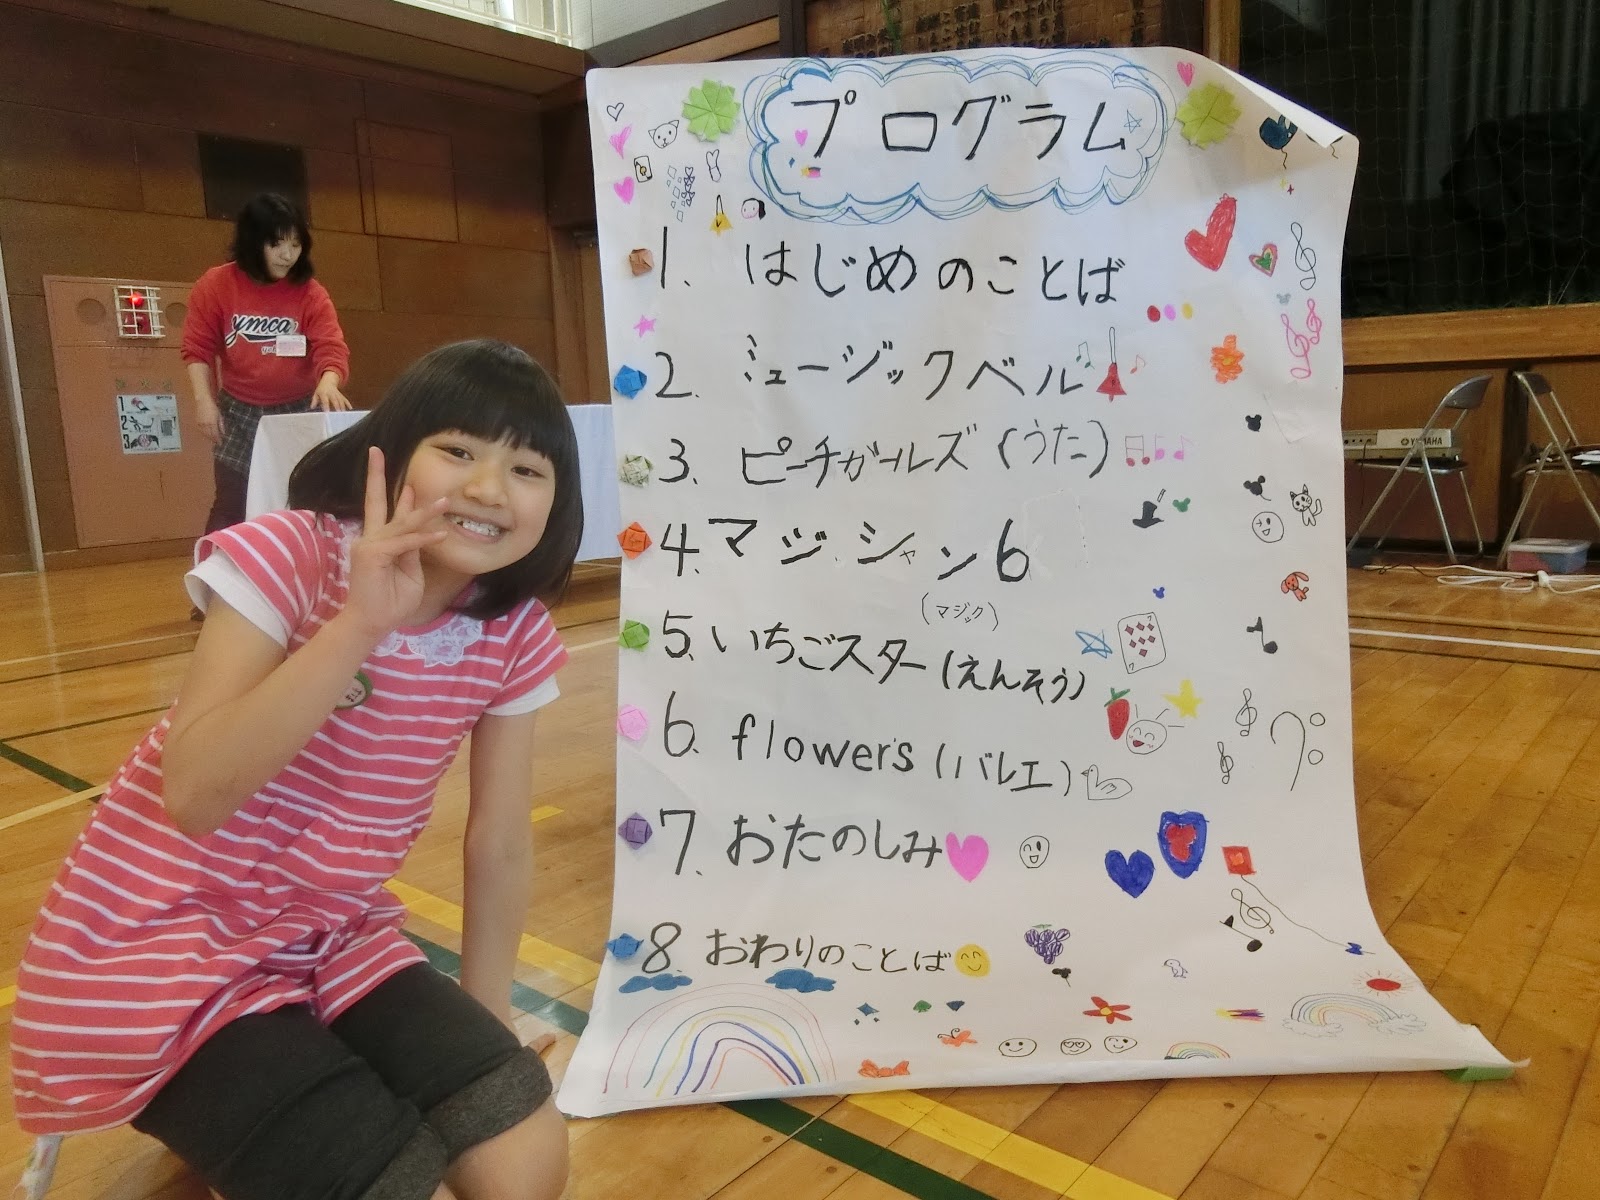 プログラム
1. はじめのことば
2. ミュージックベル
3. ピーチガールズ(うた)
4. マジシャン6
(マジック)
5. いちごスター(えんそう)
6. flower's(バレエ)
7. おたのしみ
8. おわりのことば
ymca
YAMAHA
1
2
3